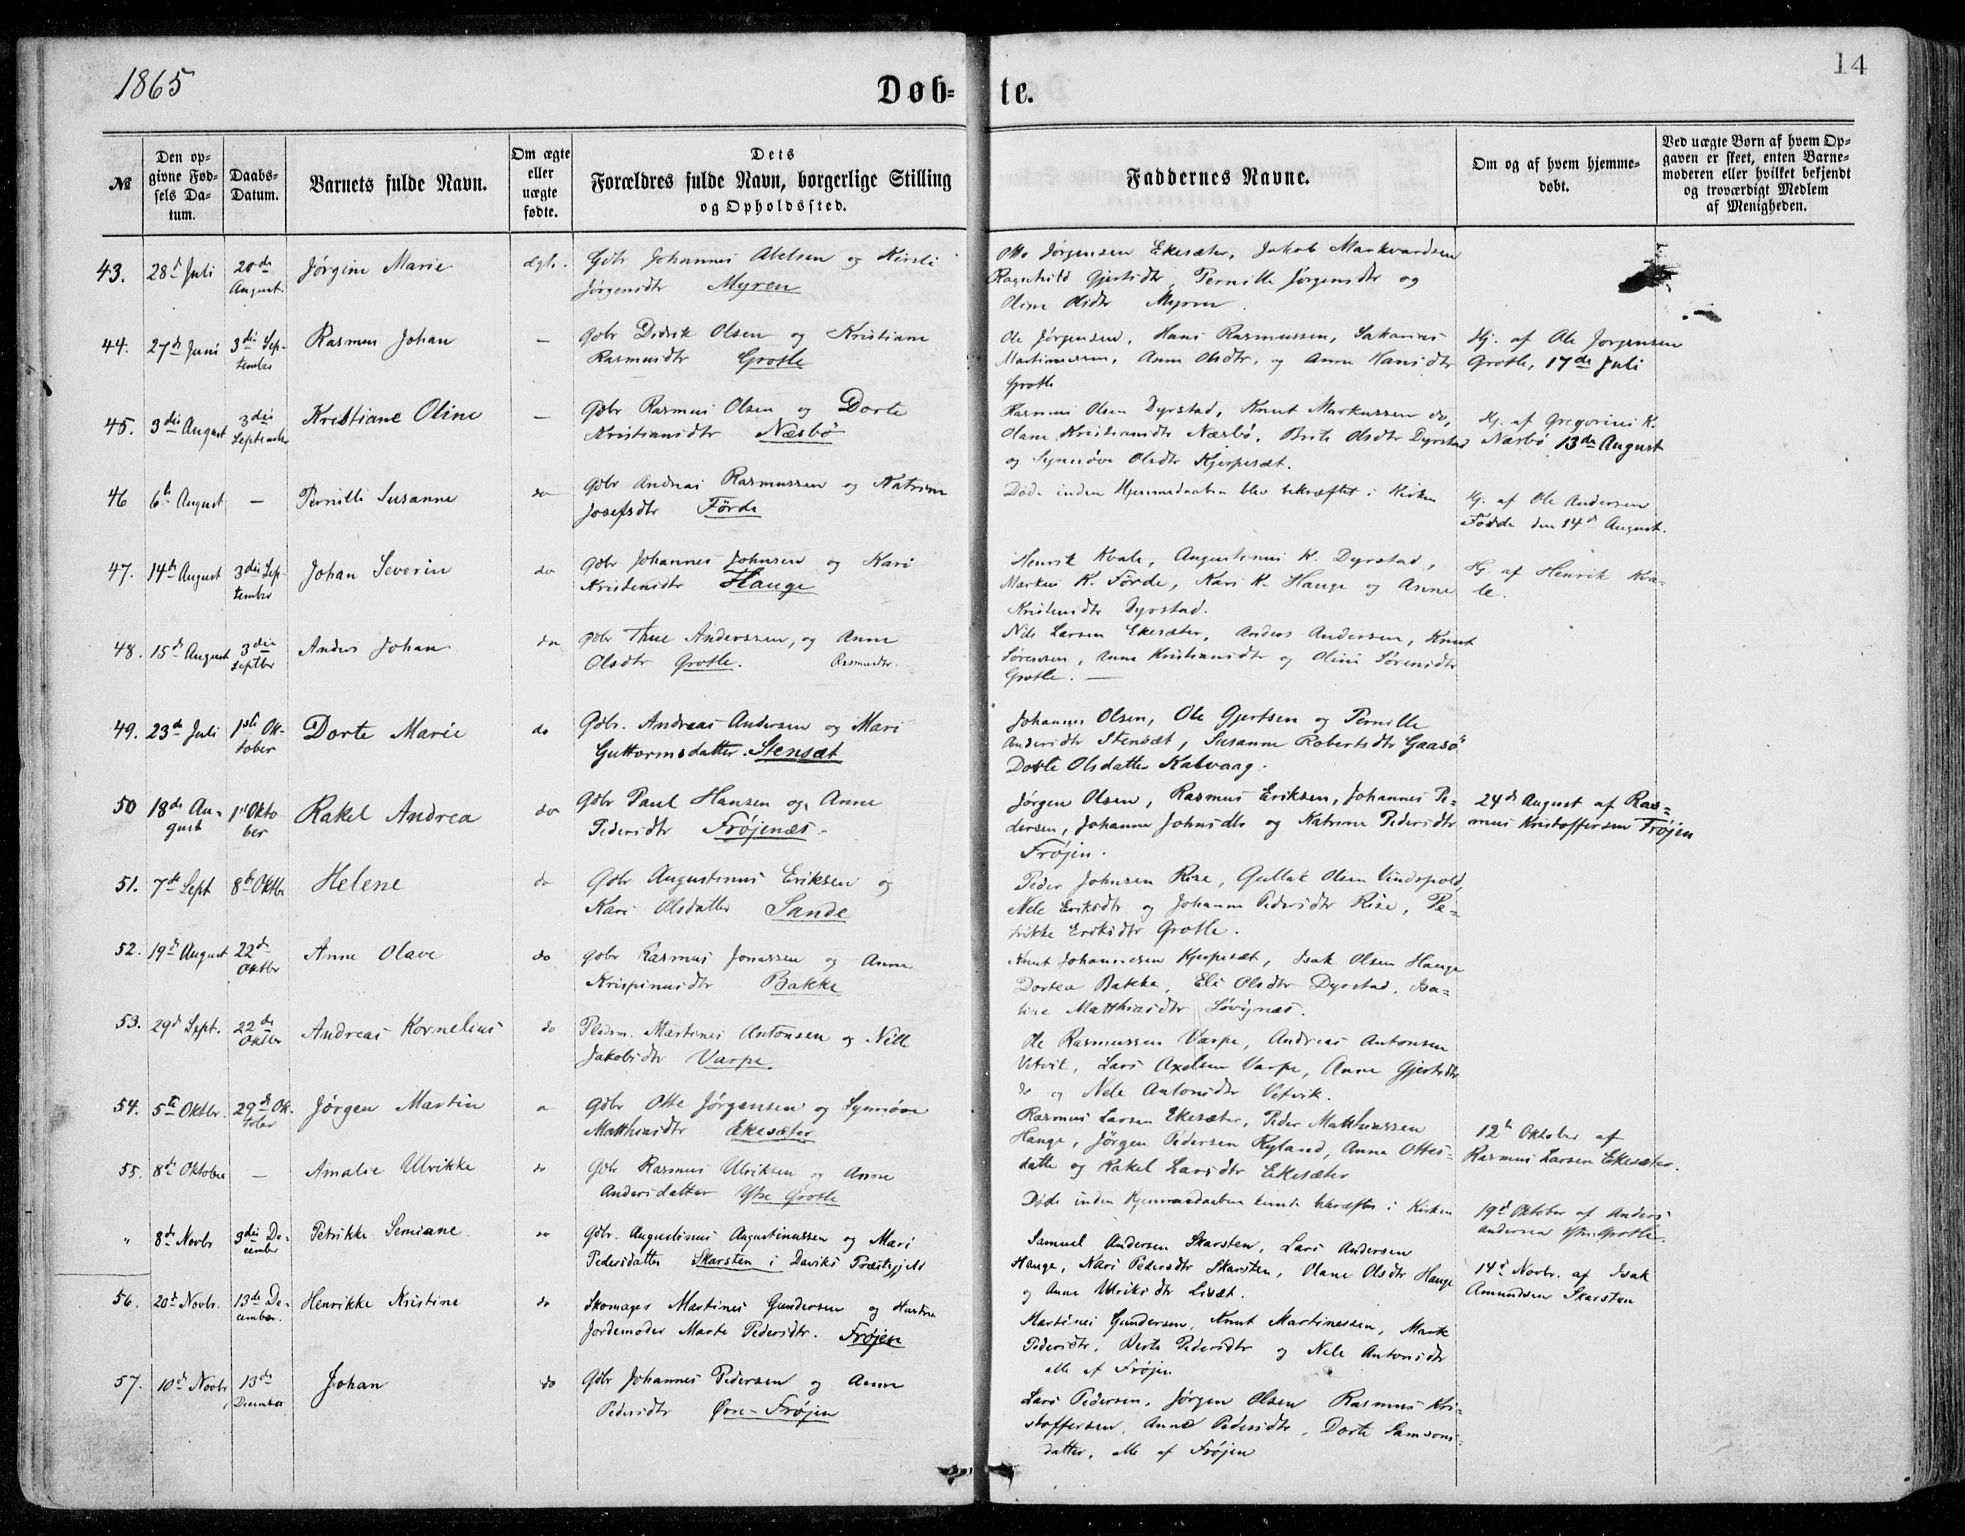 1865
14
Døb-
te.
№
Den op-
givne Fød-
sels Da-
tum.
Daabs-
Datum.
Barnets fulde Navn.
Om ægte
eller
uægte
fødte.
Dets
Forældres fulde Navn, borgerlige Stilling
og Opholdssted.
Faddernes Navne.
Om og af hvem hjemme-
døbt.
Ved uægte Børn af hvem Op-
gaven er skeet, enten Barne-
moderen eller hvilket bekjendt
og troværdigt Medlem
af Menigheden.
43. 28d Juli 20de August. Jørgine Marie ægte.
Gbr Johannes Abelsen og Kirsti
Jørgensdtr Myren
Otto Jørgensen Ekesæter, Jakob Markvardsen
Ragnhild Gjertsdtr, Pernille Jørgensdtr og
Oline Olsdtr Myren.
44. 27de Juni 3die Sep-
tember
Rasmus Johan –
Gbr Didrik Olsen og Kristiane
Rasmusdtr Grotle
Ole Jørgensen, Hans Rasmussen, Sakarias
Martinussen, Anne Olsdtr, og Anne Hansdtr
Grotle
Hj. af Ole Jørgensen
Grotle, 17de Juli
45. 3die August 3die
September
Kristiane Oline –
Gbr Rasmus Olsen og Dorte
Kristiansdtr Næsbø
Rasmus Olsen Dyrstad, Knut Markussen do,
Olane Kristiansdtr Næsbø, Brite Olsdtr Dyrstad
og Synnøve Olsdtr Kjerpesæt.
Hj. af Gregorius K.
Næsbø 13de August
46 6te August – Pernille Susanne do
Gbr Andreas Rasmussen og Katrine
Josefsdtr Førde
Døde inden Hjemmedaaben blev bekræftet i Kirken
Hj. af Ole Andersen
Førde den 14d August.
47. 14de August 3die Sep-
tember
Johan Severin do
Gbr Johannes Johnsen og Kari
Kristensdtr Hauge
Henrik Kvale, Augustinus K. Dyrstad,
Markus K. Førde, Kari K. Hauge og Anne
Kristensdtr Dyrstad.
Hj. af Henrik Kva-
le.
48. 15de August 3die
Septbr
Anders Johan do
Gbr Thue Anderssen, og Anne
Olsdtr Grotle. Rasmusdtr.
Nils Larsen Ekesæter, Anders Andersen, Knut
Sørensen, Anne Kristiansdtr og Oline Sørensdtr
Grotle. –
49. 23de Juli 1ste Ok-
tober
Dorte Marie do
Gbr. Andreas Andersen og Mari
Guttormsdatter. Stensæt
Johannes Olsen, Ole Gjertsen og Pernille
Andersdtr Stensæt, Susanne Robertsdtr Gaasø
Dorte Olsdatter Kalvaag.
50 18de Au-
gust
1ste Okto
ber
Rakel Andrea do
Gbr Paul Hansen og Anne
Pedersdtr Frøjenæs.
Jørgen Olsen, Rasmus Eriksen, Johannes Pe-
dersen, Johanne Johnsdtr og Katrine Pedersdtr
Frøjen.
24de August af Ras-
mus Kristoffersen Frøjen
51. 7de Sept 8de Oktbr Helene do
Gbr Augustinus Eriksen og
Kari Olsdatter Sande
Peder Johnsen Rise, Gullak Olsen Vindspold,
Nele Eriksdtr og Johanne Pedersdtr Rise, Pe-
trikke Eriksdtr Grotle.
52. 19de August 22de
Oktbr
Anne Olave do
Gbr Rasmus Jonassen og Anne
Krispinusdtr Bakke
Knut Johannesen Kjerpesæt, Isak Olsen Hauge
Dortea Bakke, Eli Olsdtr Dyrstad,
Matthiasdtr Løvignæs.
53. 29d Sept. 22de
Oktbr
Andreas Kornelius do
Pldsm. Martines Antonsen og Nille
Jakobsdtr Varpe.
Ole Rasmussen Varpe, Andreas Antonsen
Vetvik, Lars Axelsen Varpe, Anne Gjertsdtr
do og Nele Antonsdtr Vetvik.
54. 5te Oktbr. 29de Ok-
tober
Jørgen Martin
Gbr Otte Jørgensen og Synnøve
Matthiasdtr Ekesæter
Rasmus Larsen Ekesæter, Peder Matthiassen
Hauge, Jørgen Pedersen Ryland, Anna Ottes-
datter og Rakel Larsdtr Ekesæter
12te Oktober af
Rasmus Larsen Ekesæter.
55. 8de Oktober – Amalie Ulrikke do
Gbr Rasmus Ulriksen og Anne
Andersdatter Ytre Grotle
Døde inden Hjemmedaaben kunde bekræftes i Kirken
19d Oktober af Anders
Andersen Ytre Grotle.
" 8de Novbr 3die De-
cember
Petrikke Semiane. do
Gbr. Augustinus Augustinussen og Mari
Pedersdatter Skarsten i Daviks Præstegjeld
Samuel Andersen Skarsten, Lars Andersen
Hauge, Kari Pedersdtr Skarsten, Olane Olsdtr Hauge
og Anne Ulriksdtr Lisæt.
14d Novbr. af Isak
Amundsen Skarsten
56. 20d Novbr. 13de De-
cember.
Henrikke Kristine do
Skomager Martines Gundersen og Hustru
Jordemoder Marte Pedersdtr. Frøjen
Martines Gundersen, Knut Martinessen, Marte
Pedersdtr, Berte Pedersdtr og Nele Antonsdtr
alle af Frøjen
57. 10de Novbr 13de
December
Johan do
Gbr Johannes Pedersen og Anne
Pedersdtr Øvre-Frøjen
Lars Pedersen, Jørgen Olsen Rasmus Kri-
stoffersen, Anne Pedersdtr, Dorte Samsons-
datter, alle af Frøjen